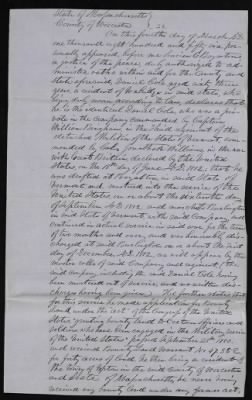 State of Massachusetts }
County of Worcester } SS.
On this fourth day of March A.D.
one thousand eight hundred and fifty six per-
sonally appeared before me
a justice of the peace duly authorized to ad-
minister oaths within and for the County and
State aforesaid, Daniel Cole aged sixty three
years a resident of Uxbridge in said State, who
being duly sworn according to law, declares that
he is the identical Daniel Cole who was a pri-
vate in the Company commanded by Captain
William Bingham in the third regiment of the
detached Militia of the State of Vermont, com-
manded by Col. Williams in the war
with Great Britain declared by the United
States on the 18th day of June A.D. 1812, that he
was drafted at in said State of
Vermont and mustered into the service of the
United States on or about the
of September A.D. 1812, and marched to
in said State of Vermont with said Company and
continued in actual service in said war for the term
of two months and over, and was honorably dis-
charged at said Burlington on or about the first
day of December A.D. 1812, as will appear by the
muster rolls of said Company and regiment, the
said company including the said Daniel Cole having
been mustered out of service, and no written dis-
charge having been given. He further states that
for this service he made application for Bounty
Land under the act of the Congress of the United
States granting bounty land to certain officers and
soldiers who have been engaged in the Military service
of the United States passed September 28th 1850,
and received Bounty Land Warrant No.
for forty acres of land he then being a resident of
the town of Upton in the said County of Worcester
and State of Massachusetts, he never having
received any County land under any former act